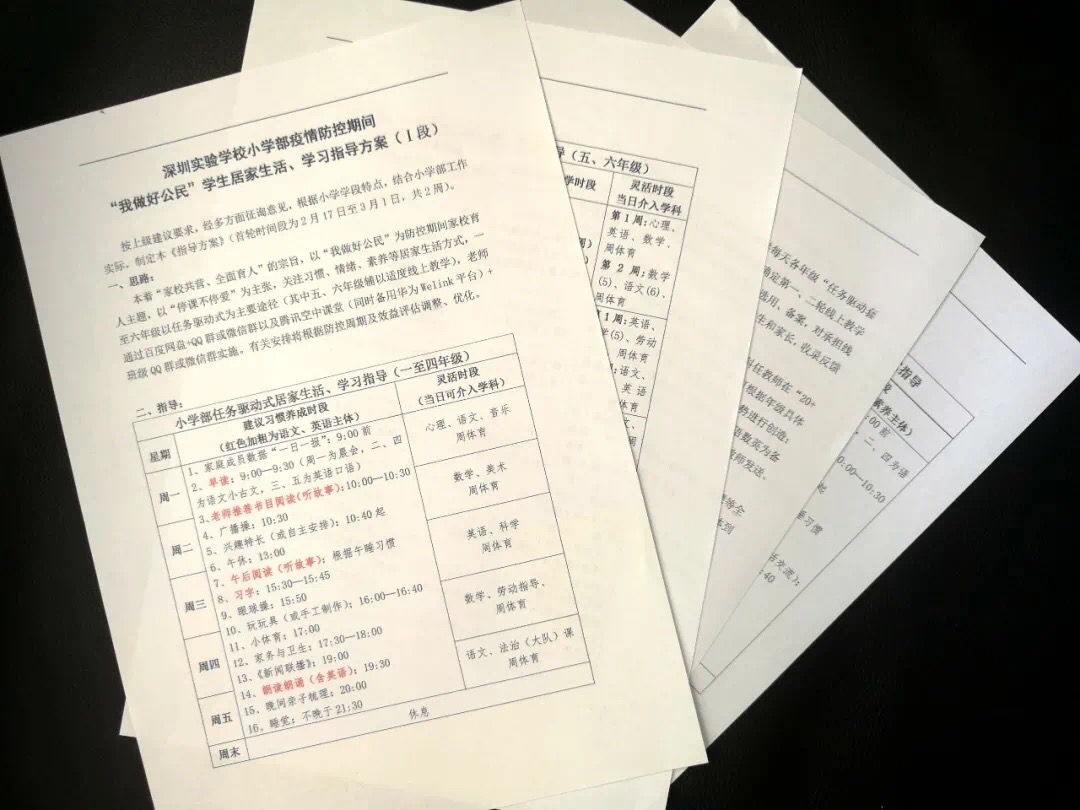 深圳实验学校小学部疫情防控期间
“我做好公民”学生居家生活、学习指导方案（I段）
按上级建议要求，经多方面征询意见，根据小学学段特点，结合小学部工作
实际，制定本《指导方案》（首轮时间段为2月17日至3月1日，共2周）。
一、思路：
本着“家校共营、全面育人”的宗旨，以“我做好公民”为防控期间家校育
人主题，以“停课不停爱”为主张，关注习惯、情绪、素养等居家生活方式，一
至六年级以任务驱动式为主要途径（其中五、六年级辅以适度线上教学），老师
通过百度网盘+QQ群或微信群以及腾讯空中课堂（同时备用华为Welink平台）+
班级QQ群或微信群实施。有关安排将根据防控周期及效益评估调整、优化。
二、指导：
小学部任务驱动式居家生活、学习指导（一至四年级）
星期
建议习惯养成时段
（红色加粗为语文、英语主体）
灵活时段
（当日可介入学科）
周一
周二
周三
周四
周五
周末
1、家庭成员数据“一日一报”：9:00前
2、早读：9:00—9:30（周一为晨会，二、四
为语文小古文，三、五为英语口语）
3、老师推荐书目阅读（听故事）：10:00—10:30
4、广播操：10:30
5、兴趣特长（或自主安排）：10:40起
6、午休：13:00
7、午后阅读（听故事）：根据午睡习惯
8、习字：15:30—15:45
9、眼球操：15:50
10、玩玩具（或手工制作）：16:00—16:40
11、小体育：17:00
12、家务与卫生：17:30—18:00
13、《新闻联播》：19:00
14、朗读朗诵（含英语）：19:30
15、晚间亲子梳理：20:00
16、睡觉：不晚于21:30
心理、语文、音乐
周体育
数学、美术
周体育
英语、科学
周体育
数学、劳动指导、
周体育
语文、法治（大队）课
周体育
休息
（五、六年级）
学时段
灵活时段
当日介入学科
第1周：心理、
英语、数学、
周体育
第2周：数学
(5)、语文(6)、
周体育
第1周：英语、
(5)、劳动
周体育
语文、
英语
体育
每天各年级“任务驱动套
确定第一、二轮线上教学
选用、备案，对承担线
生和家长，收采反馈
科任教师在“20+
根据年级具体
进行创造；
数英为备
教师发送。
等全
体到
指导
素养主体）
:00前
二、四为语
0:00—10:30
起
睡习惯
交流）；
:40